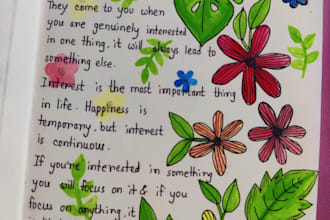 They come to you when
you are genuinely interested
in one thing, it will always lead to
something else.
Interest is the most important thing
in life. Happiness is
temporary, but interest
is continuous.
If you're interested in something
you will focus on it & if you
focus on anything, it